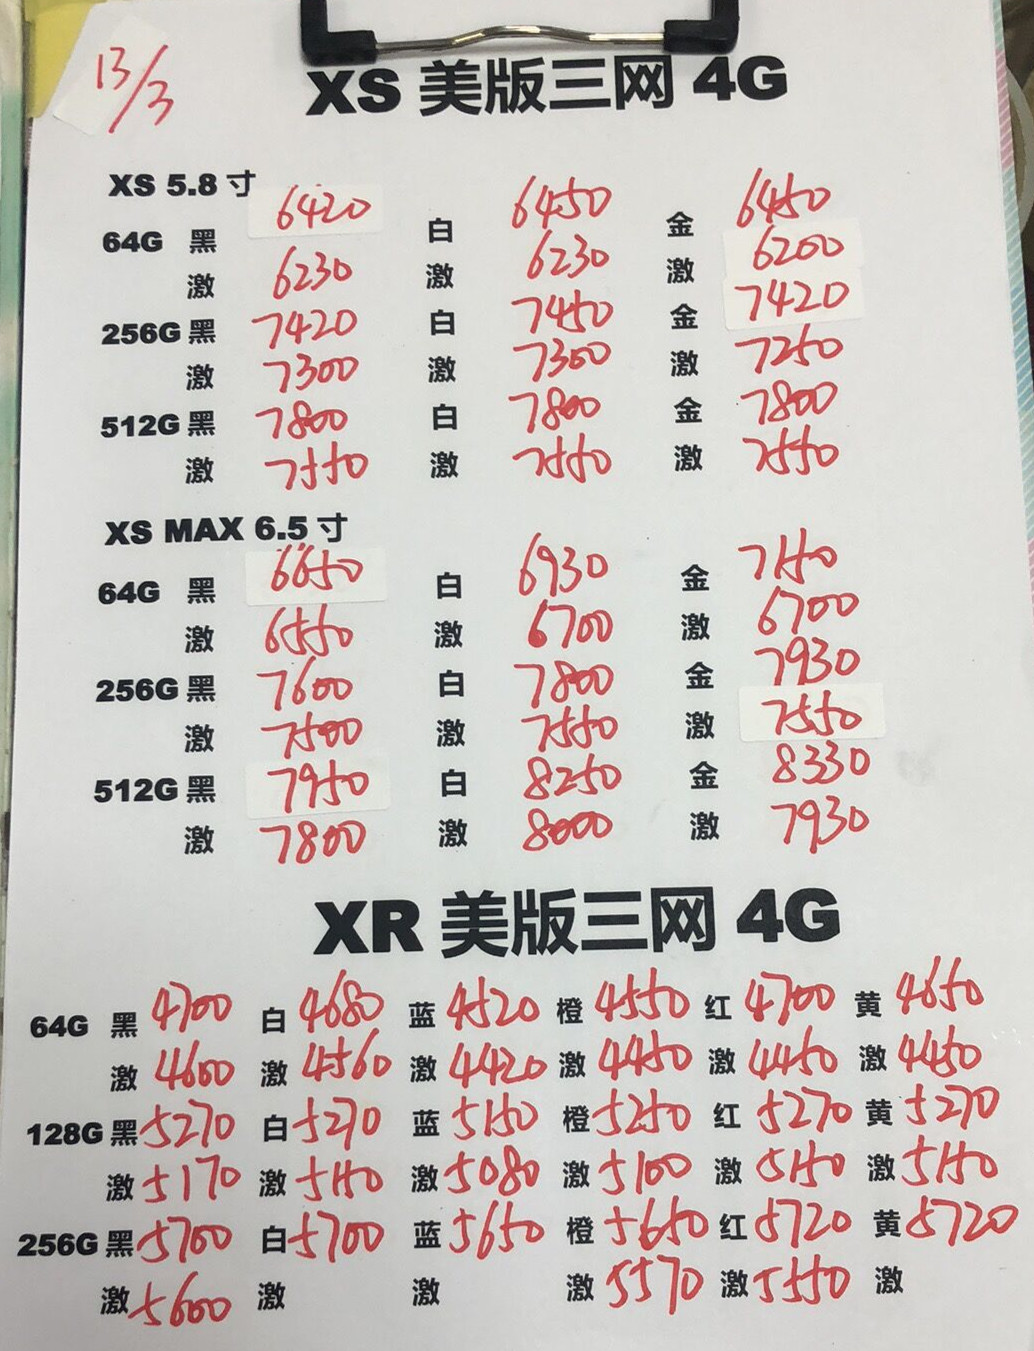 13/3
XS 美版三网 4G
XS 5.8 寸
64G 黑 6420 白 6450 金 6450
激 6230 激 6230 激 6200
256G 黑 7420 白 7450 金 7420
激 7300 激 7300 激 7250
512G 黑 7800 白 7800 金 7800
激 7550 激 7550 激 7550
XS MAX 6.5 寸
64G 黑 6650 白 6930 金 7150
激 6550 激 6700 激 6700
256G 黑 7600 白 7800 金 7930
激 7500 激 7550 激 7550
512G 黑 7950 白 8250 金 8330
激 7800 激 8000 激 7930
XR 美版三网 4G
64G 黑 4700 白 4680 蓝 4520 橙 4550 红 4700 黄 4650
激 4600 激 4560 激 4420 激 4450 激 4450 激 4450
128G 黑 5270 白 5270 蓝 5150 橙 5250 红 5270 黄 5270
激 5170 激 5150 激 5080 激 5100 激 5150 激 5150
256G 黑 5700 白 5700 蓝 5650 橙 5650 红 5720 黄 5720
激 5600 激 激 激 5570 激 5550 激